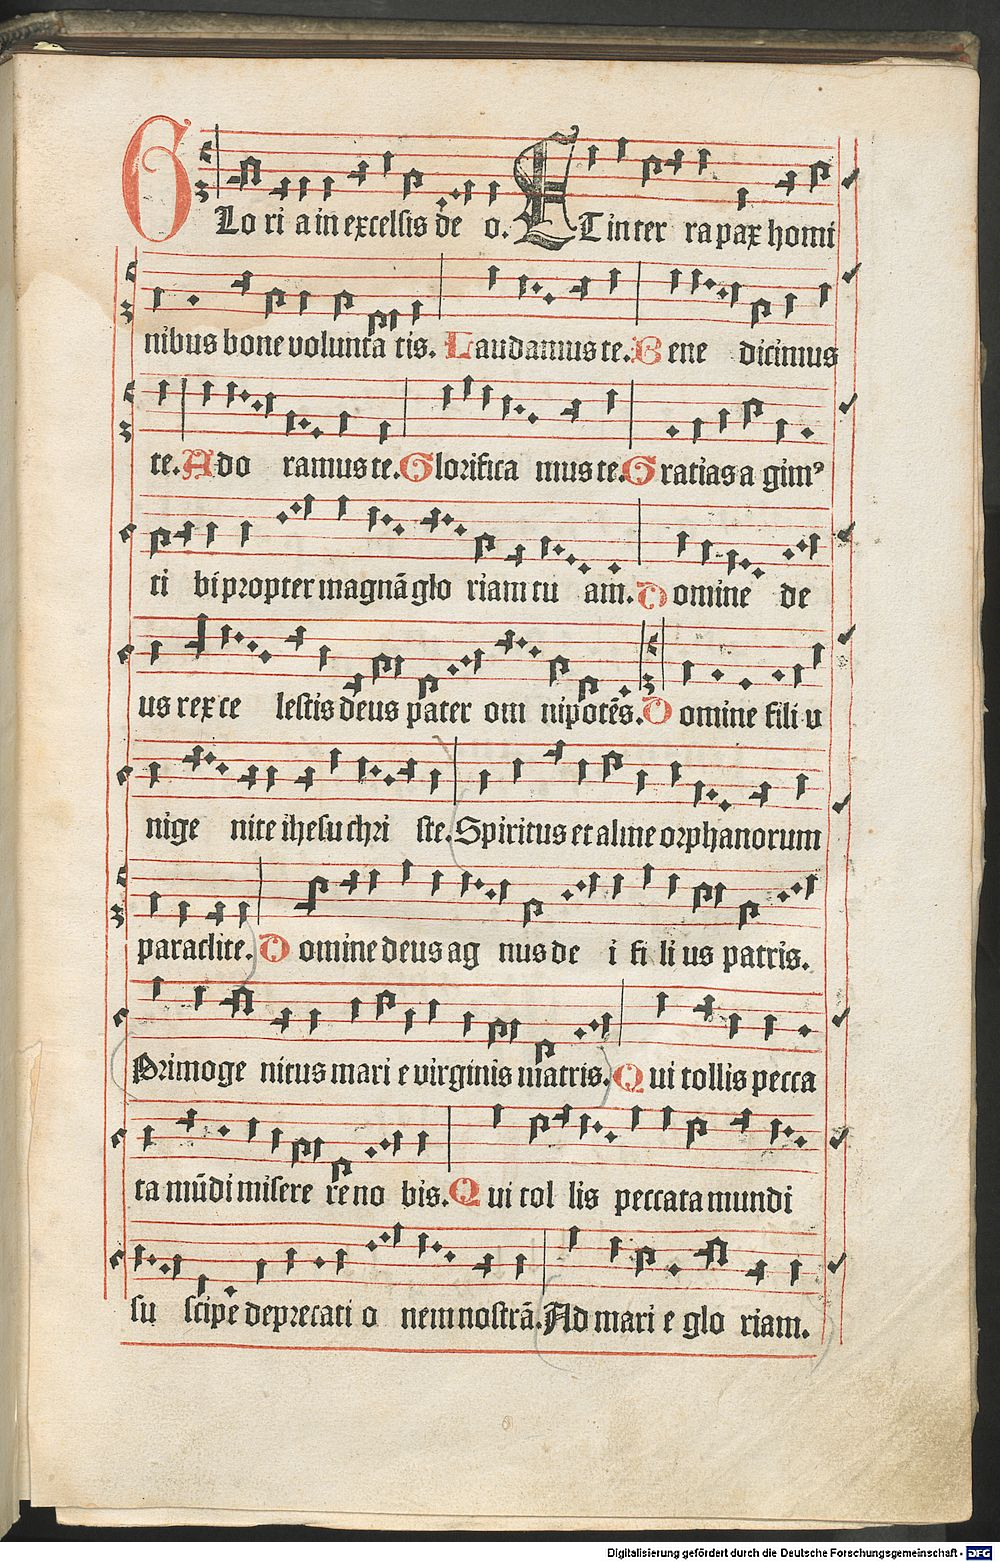 GLo ri a in excelsis de o. ET in ter ra pax homi
nibus bone volunta tis. Laudamus te. Bene dicimus
te. Ado ramus te. Glorifica mus te. Gratias a gimꝰ
ti bi propter magnā glo riam tu am. Domine de
us rex ce lestis deus pater om nipotēs. Domine fili u
nige nite ihesu chri ste. Spiritus et alme orphanorum
paraclite. Domine deus ag nus de i fi li us patris.
Primoge nitus mari e virginis matris. Qui tollis pecca
ta mūdi misere re no bis. Qui tol lis peccata mundi
su scipe deprecati o nem nostrā. Ad mari e glo riam.
Digitalisierung gefördert durch die Deutsche Forschungsgemeinschaft - DFG